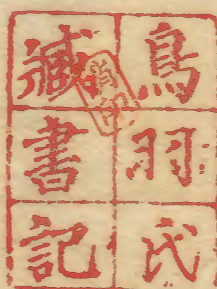 鳥羽氏
蔵書記